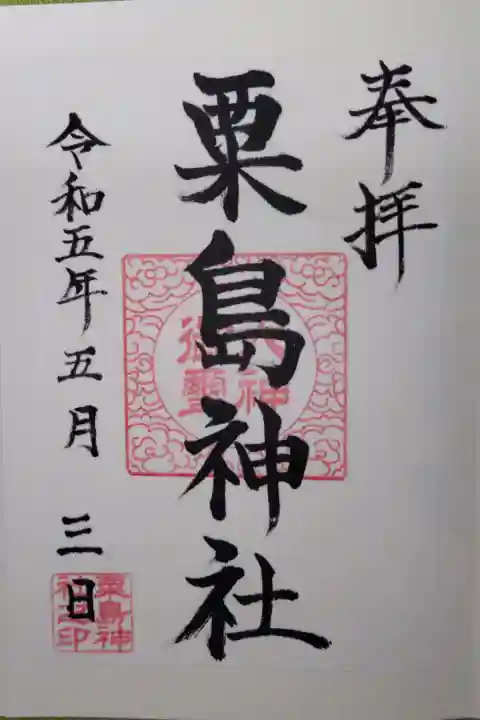 奉拝
粟島神社
令和五年五月三日
粟島神
社之印